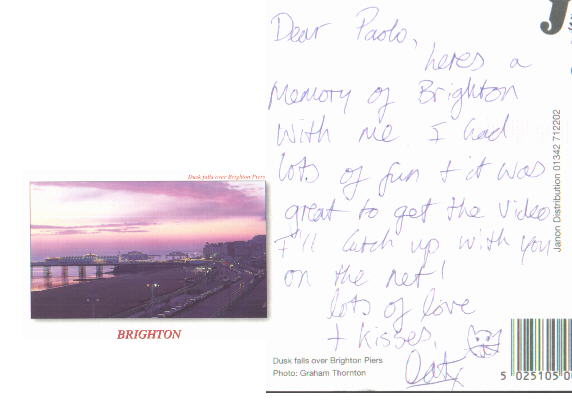 Dusk falls over Brighton Piers
BRIGHTON
Dear Paolo,
heres a
Memory of Brighton
with me. I had
lots of fun + it was
great to get the video
I'll catch up with you
on the net!
lots of love
+ kisses,
Dusk falls over Brighton Piers
Photo: Graham Thornton
Janon Distribution 01342 712202
5 025105 0